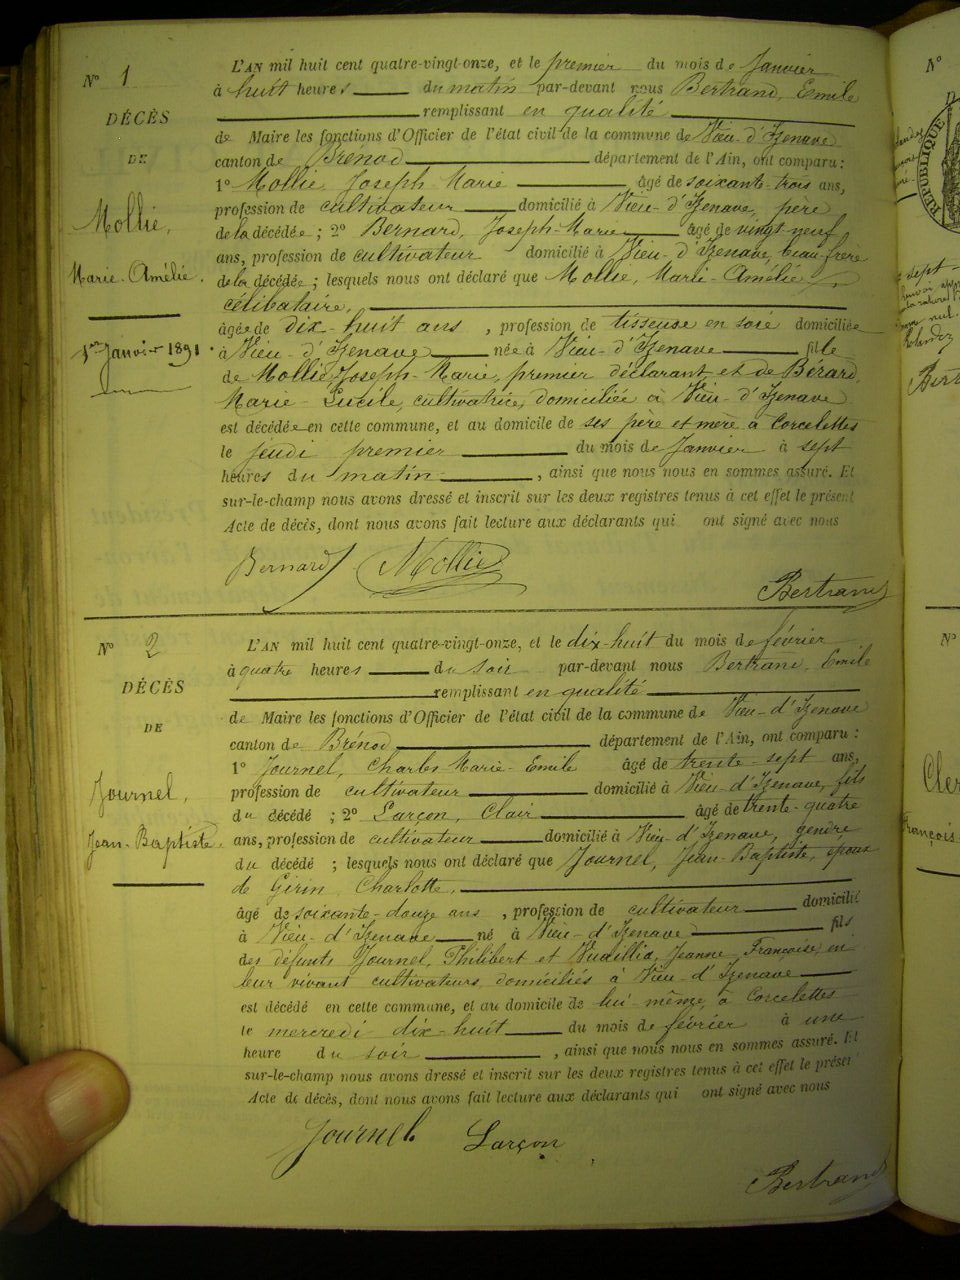 N° 1
DÉCÈS
DE
Mollie,
Marie-Amélie.
1er Janvier 1891.
L'AN mil huit cent quatre-vingt-onze, et le premier du mois de Janvier
à huit heures du matin par-devant nous Bertrand, Emile
remplissant en qualité
de Maire les fonctions d'Officier de l'état civil de la commune de Vieu-d'Izenave
canton de Brénod département de l'Ain, ont comparu :
1° Mollie Joseph-Marie âgé de soixante-trois ans,
profession de cultivateur domicilié à Vieu-d'Izenave, père
de la décédée ; 2° Bernard, Joseph-Marie âgé de vingt-neuf
ans, profession de cultivateur domicilié à Vieu-d'Izenave, beau-frère
de la décédée ; lesquels nous ont déclaré que Mollie, Marie-Amélie
célibataire,
âgée de dix-huit ans , profession de tisseuse en soie domiciliée
à Vieu-d'Izenave née à Vieu-d'Izenave fille
de Mollie Joseph-Marie, premier déclarant et de Bérard,
Marie-Lucile, cultivatrice, domiciliée à Vieu-d'Izenave
est décédée en cette commune, et au domicile de ses père et mère à Corcelettes
le jeudi premier du mois de Janvier à sept
heures du matin , ainsi que nous nous en sommes assuré. Et
sur-le-champ nous avons dressé et inscrit sur les deux registres tenus à cet effet le présent
Acte de décès, dont nous avons fait lecture aux déclarants qui ont signé avec nous
Bernard Mollie
Bertrand
N° 2
DÉCÈS
DE
Journel,
Jean-Baptiste.
L'AN mil huit cent quatre-vingt-onze, et le dix-huit du mois de février
à quatre heures du soir par-devant nous Bertrand, Emile
remplissant en qualité
de Maire les fonctions d'Officier de l'état civil de la commune de Vieu-d'Izenave
canton de Brénod département de l'Ain, ont comparu :
1° Journel, Charles-Marie-Emile âgé de trente-sept ans,
profession de cultivateur domicilié à Vieu-d'Izenave, fils
du décédé ; 2° Larçon, Clair âgé de trente-quatre
ans, profession de cultivateur domicilié à Vieu-d'Izenave, gendre
du décédé ; lesquels nous ont déclaré que Journel, Jean-Baptiste, époux
de Girin Charlotte,
âgé de soixante-douze ans , profession de cultivateur domicilié
à Vieu-d'Izenave né à Vieu-d'Izenave fils
des défunts Journel, Philibert et Vuaillia, Jeanne Françoise, en
leur vivant cultivateurs domiciliés à Vieu-d'Izenave
est décédé en cette commune, et au domicile de lui-même, à Corcelettes
le mercredi dix-huit du mois de février à une
heure du soir , ainsi que nous nous en sommes assuré. Et
sur-le-champ nous avons dressé et inscrit sur les deux registres tenus à cet effet le présent
Acte de décès, dont nous avons fait lecture aux déclarants qui ont signé avec nous
Journel Larçon
Bertrand
N°
RÉPUBLIQUE
sept
nul.
N°
François